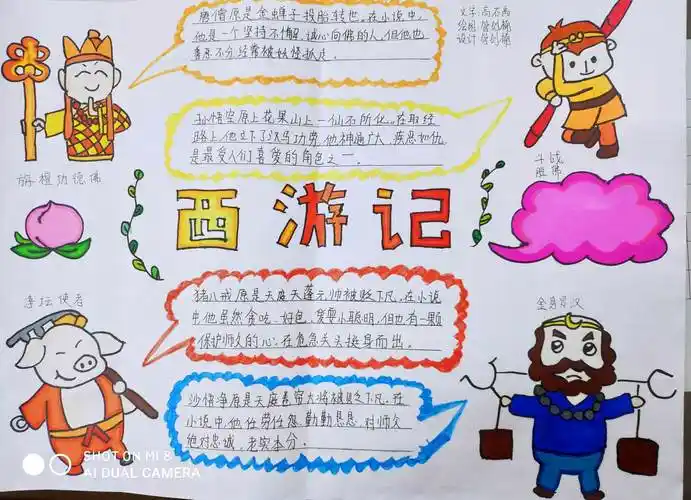 唐僧原是金蝉子投胎转世。在小说中,
他是一个坚持不懈,诚心向佛的人,但他也
善恶不分经常被妖怪抓走。
文字:
绘图:
设计:
孙悟空原上花果山上一仙石所化。在取经
路上,他立下了汗马功劳,他神通广大、疾恶如仇
是最受人们喜爱的角色之一。
旃檀功德佛
斗战
胜佛
西游记
净坛使者
猪八戒原是天庭天蓬元帅被贬下凡。在小说
中他虽然贪吃、好色、爱耍小聪明,但他有一颗
保护师父的心,在危急关头挺身而出。
金身罗汉
沙悟净原是天庭卷帘大将被贬下凡。在
小说中,他任劳任怨、勤勤恳恳,对师父
绝对忠诚,老实本分。
SHOT ON MI 8
AI DUAL CAMERA